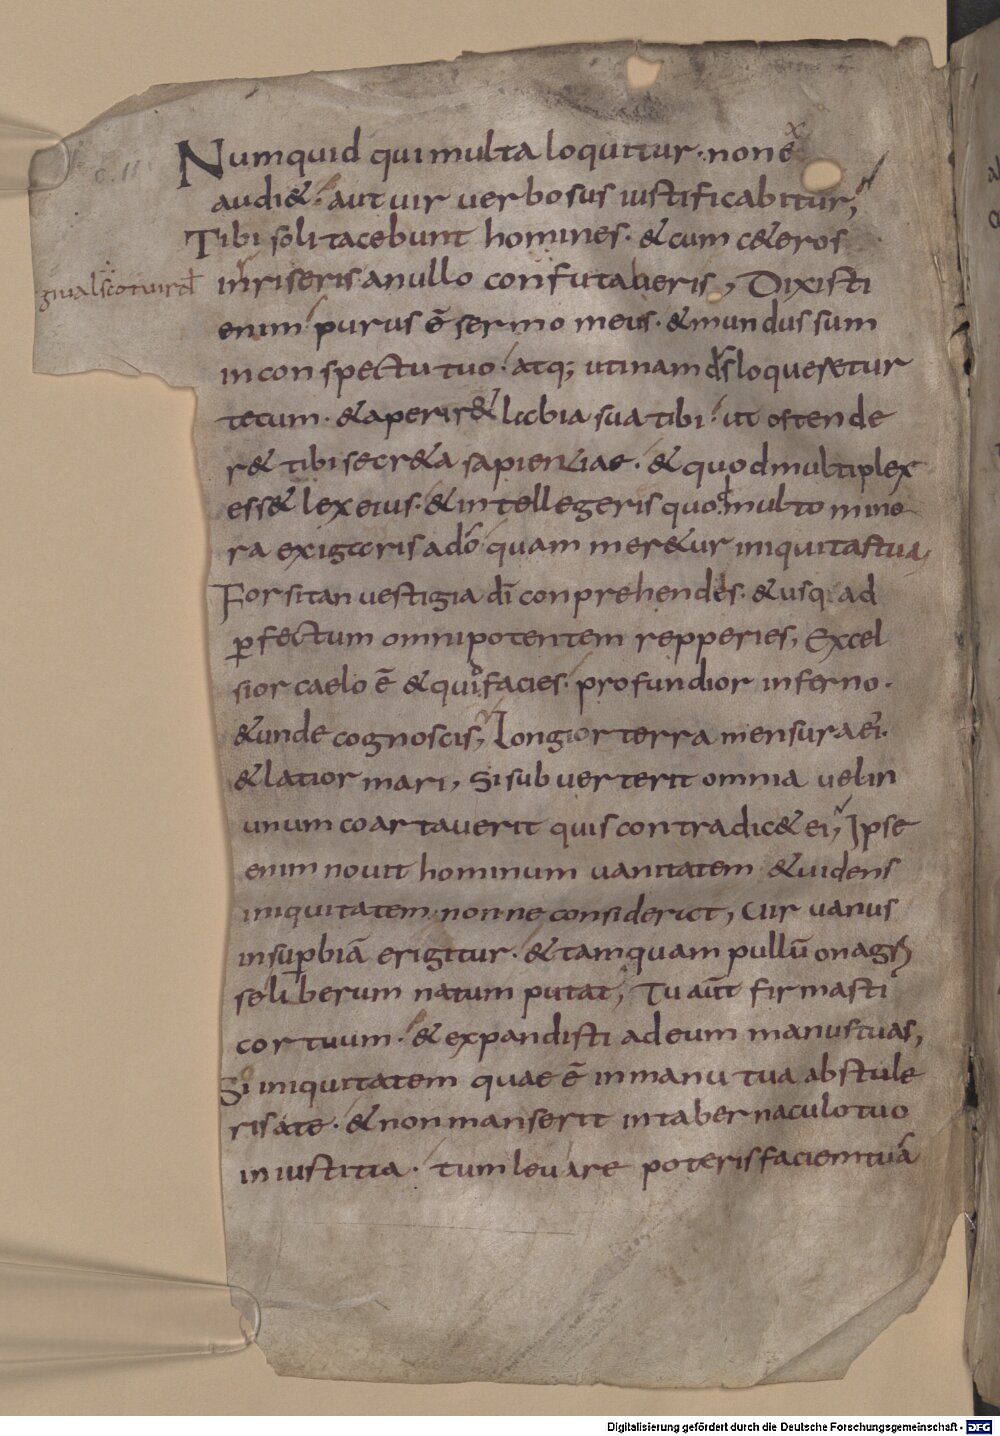 c. 11
Numquid qui multa loquitur · non &
audi& · aut uir uerbosus iustificabitur;
Tibi soli tacebunt homines · & cum c&eros
inriseris a nullo confutaueris, Dixisti
enim purus ē sermo meus · & mundus sum
in conspectu tuo · atq; utinam d̄s loqueretur
tecum · & aperir& labia sua tibi · ut ostende
r& tibi secr&a sapientiae · & quod multiplex
ess& lex eius · & intellegeris quod multo mino
ra exigaris a dō quam mer&ur iniquitas tua,
Forsitan uestigia dī conprehendes · & usq; ad
ꝑfectum omnipotentem repperies, Excel
sior caelo ē & quid facies · profundior inferno ·
& unde cognoscis, Longior terra mensura ei ·
& latior mari, Si subuerterit omnia uel in
unum coartauerit quis contradic& ei, Ipse
enim nouit hominum uanitatem & uidens
iniquitatem nonne considerat, Cur uanus
in suꝑbiā erigitur · & tamquam pullū onagri
se liberum natum putat, Tu aūt firmasti
cor tuum · & expandisti ad eum manus tuas,
Si iniquitatem quae ē in manu tua abstule
ris a te · & non manserit in tabernaculo tuo
iniustitia · tum leuare poteris faciem tuā
Digitalisierung gefördert durch die Deutsche Forschungsgemeinschaft - DFG